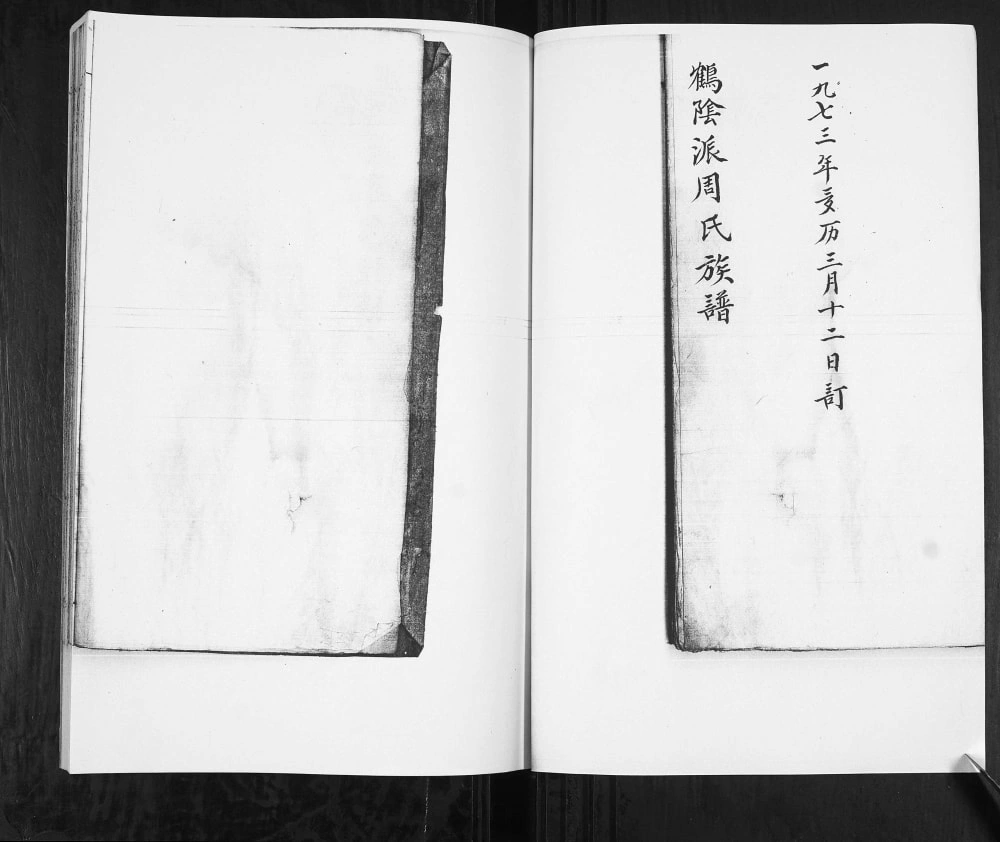 一九七三年夏历三月十二日訂
鶴陰派周氏族譜